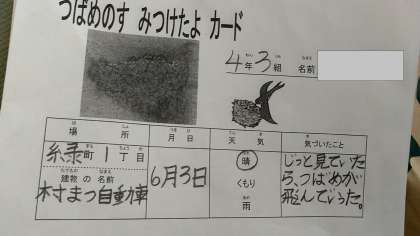 つばめのす みつけたよ カード
4年3組 名前
場所 月日 天気 気づいたこと
緑町1丁目
建物の名前
村まつ自動車
6月3日
晴
くもり
雨
じっと見ていた
ら、つばめが
飛んでいった。